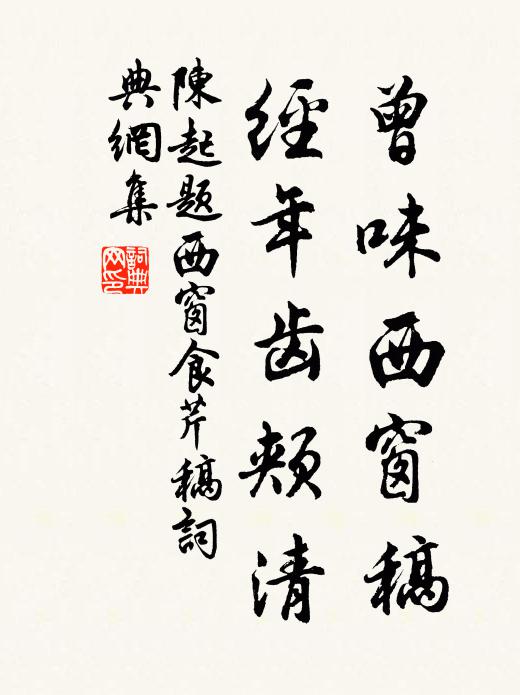 曾味西窗稿
經年齿頰清
陳起题西窗食芹稿詞
典網集
詞典
网印